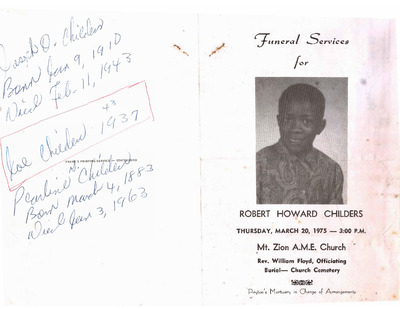 Joseph O. Childers
Born Jan 9, 1910
Died Feb. 11, 1943
43
Joe Childers 1937
Pearline N. Childers
Born March 4, 1883
Died Jan 3, 1963
Funeral Services
for
ROBERT HOWARD CHILDERS
THURSDAY, MARCH 20, 1975 — 3:00 P.M.
Mt. Zion A.M.E. Church
Rev. William Floyd, Officiating
Burial— Church Cemetery
Payton's Mortuary in Charge of Arrangements